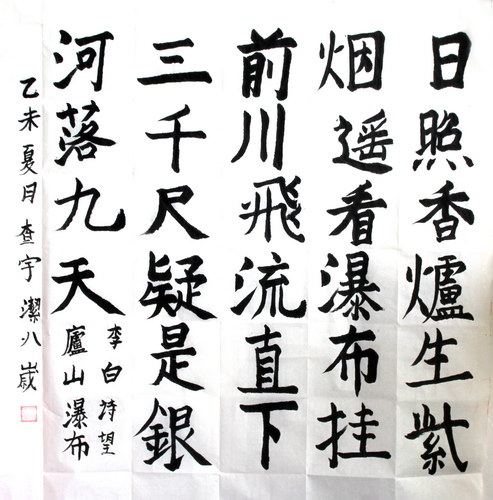 日照香爐生紫
烟遥看瀑布挂
前川飛流直下
三千尺疑是銀
河落九天
李白诗望
廬山瀑布
乙未夏月查宇潔八歲